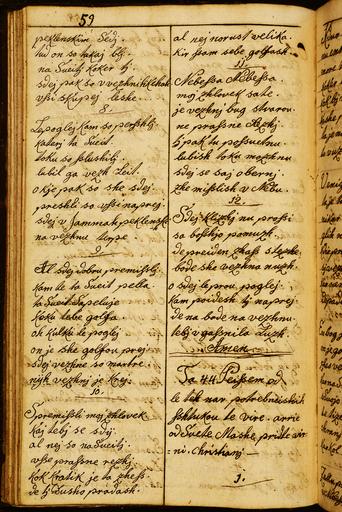 59
peklenskim Sidi
tud on so sakaj bly
na Sveit koker ti
sdej pak so v vezhnih kehah
vsi skupej leshe.
8.
Le poglej kam so pershli
kateri ta Sveit
toku so slushili
lubil ga vezh Leit.
okje pak so she sdej
preshli so vssi naprej
sdej v Jammah peklenske
na vezhnu
9.
Al sdej dobru premisli
kam le ta Sveit pella
ta Sveit sapeluje
koku lube golfa
oh kulku te poglej
on je she golfou prej
sdej vezhne so martre
nyh vezhni je krej.
10.
Spremisli moj zhlovek
kaj tebi se sdij
al nej so na Sveiti
vsse prasne rezhy
kok kratik je ta zhass
de ti dusho prodash.
al nej norust velika.
kir ssam sebe golfash.
11.
Nebessa Nebessa
moj zhlovek sa te
je vezhni bug stvaru
ne prasne
ti pak tu possuetnu
lubish toku mozhnu
sdej se saj oberni
zhe mislish v Nebu.
12.
Sdej klizhi no prossi
sa boshjo pomuzh.
de preiden zhass
bode she vezhna nuzh.
o sdej le prou poglej
kam poidesh ti naprej
de na bode na vezhnu
tebi vgasnila Luzh
Amen
Ta 44 Peissem od
le teh nar potrebnishih
shtukou te vire.
od Svete Mashe, pride
ni. Christiani
1.